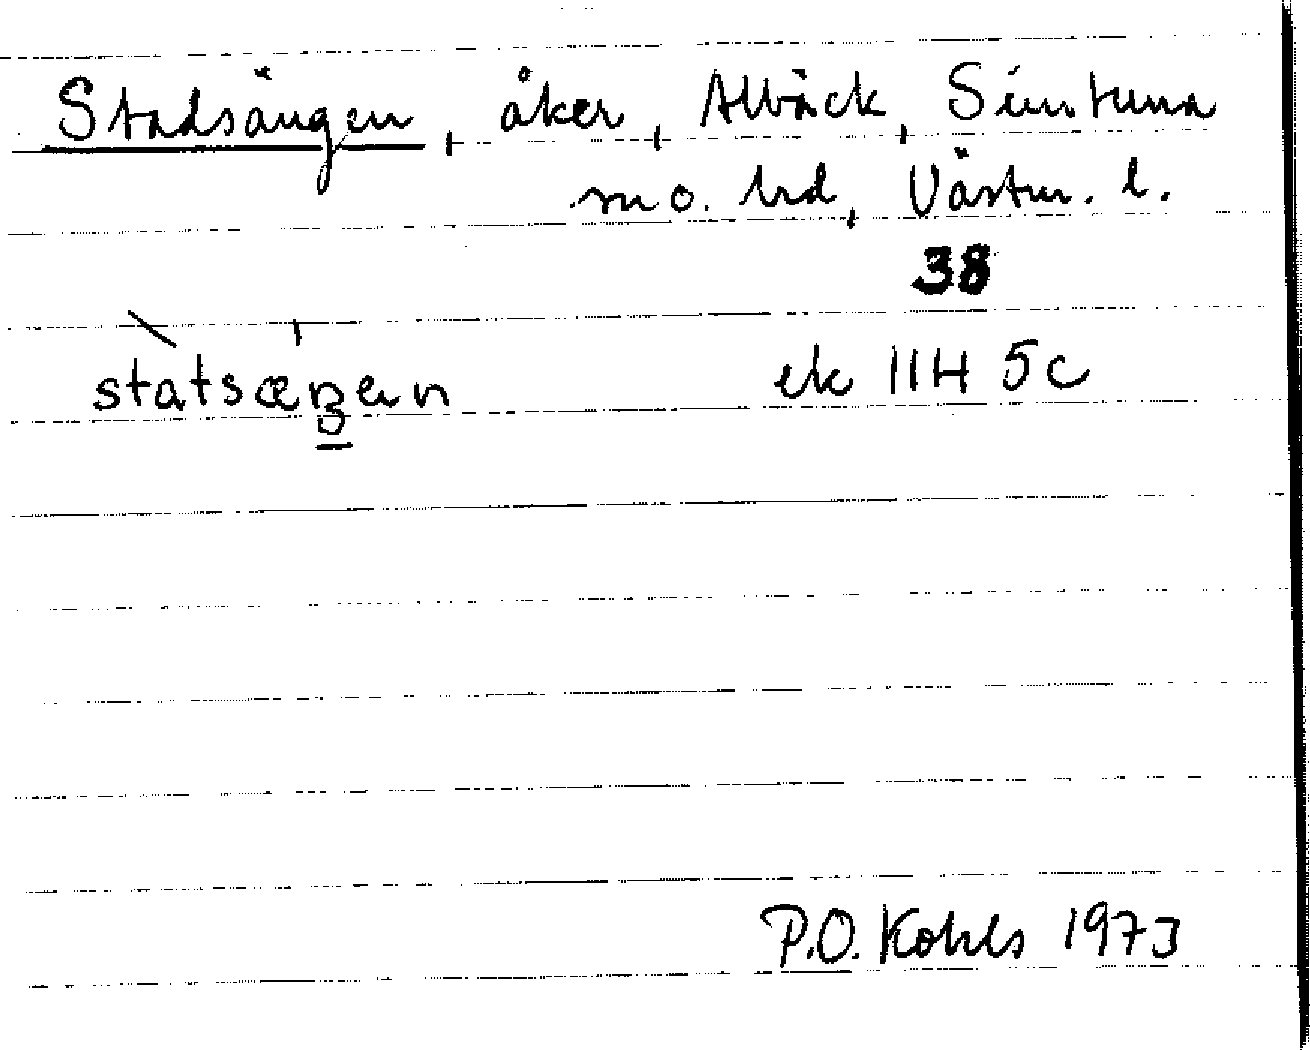 Stadsängen, åker, Allbäck, Simtuna
sn o. hd, Västm. l.
38
ek 11H 5c
P.O. Kohls 1973